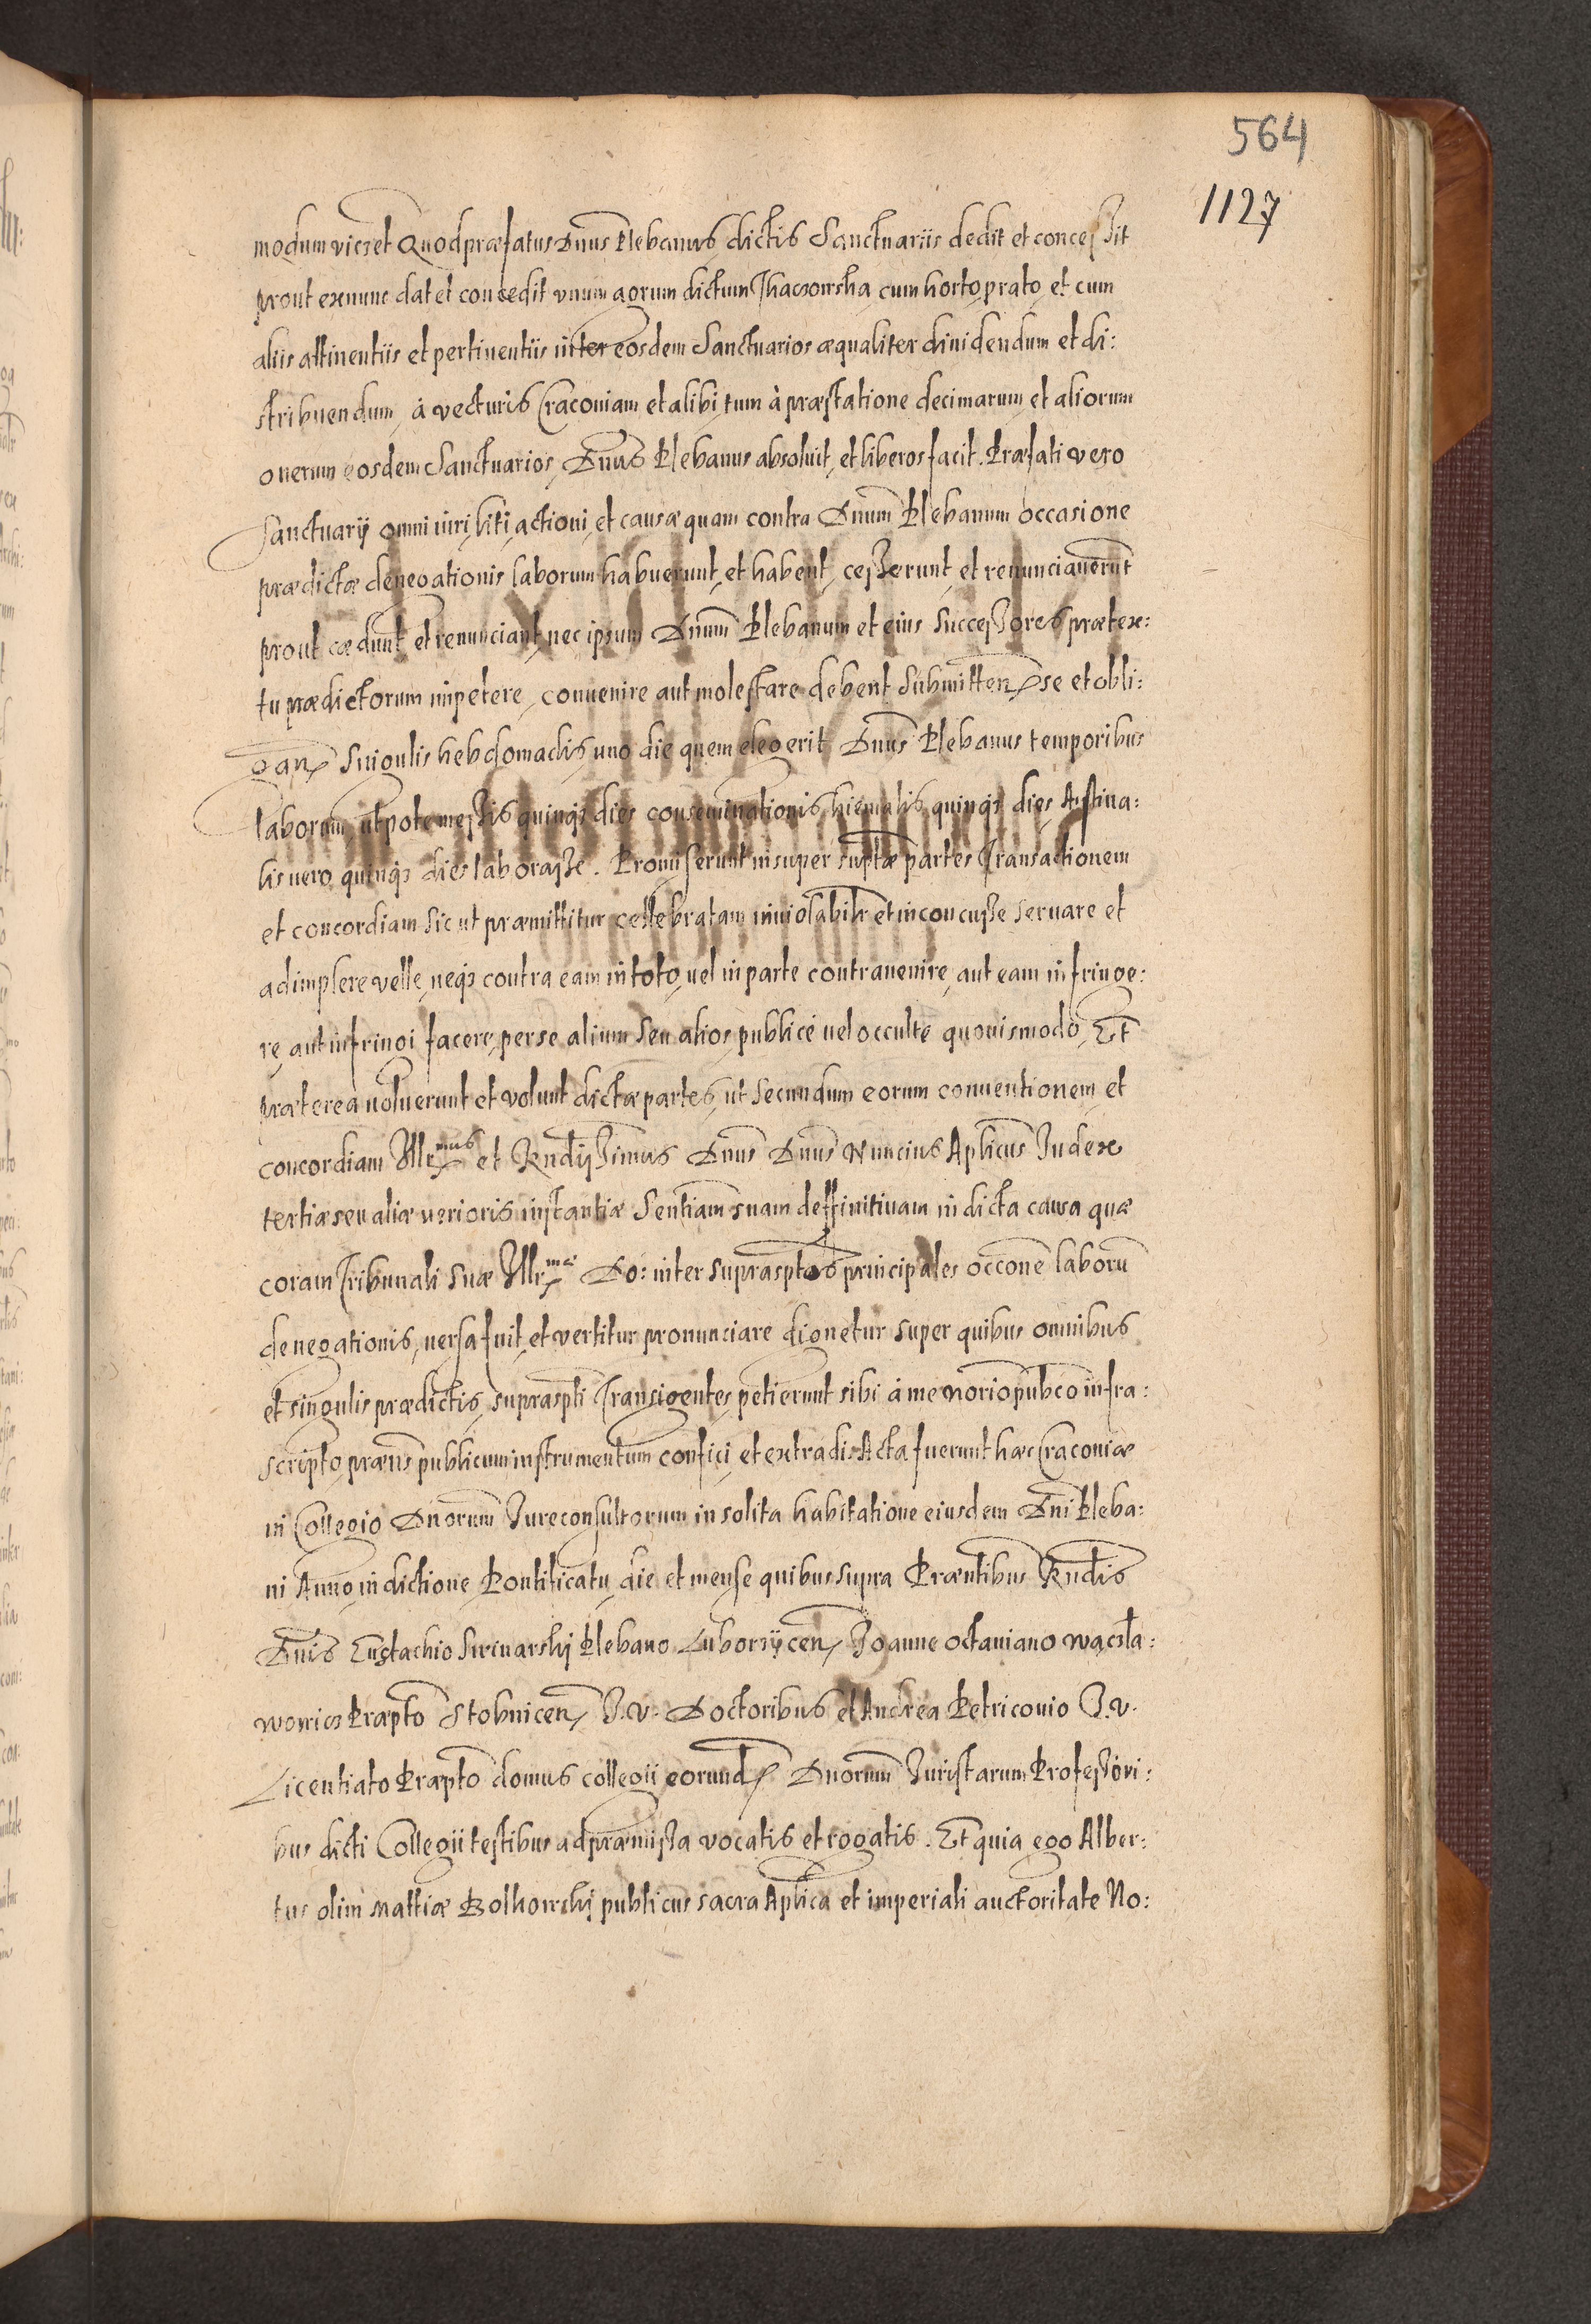 564
1127
modum vicz et Quod præfatus Dnus Plebanus dictis Sanctuariis dedit et concessit
prout ex nunc dat et concedit vnum agrum dictum cum horto, prato, et cum
aliis attinentiis et pertinentiis inter eosdem Sanctuarios æqualiter diuidendum et di:
stribuendum, à vecturis Cracouiam et alibi, tum à præstatione decimarum, et aliorum
onerum eosdem Sanctuarios, Dnus Plebanus absoluit, et liberos facit. Præfati vero
Sanctuarij omni iuri, liti, actioni, et causæ quam contra Dnum Plebanum occasione
prædictæ denegationis laborum habuerunt, et habent, cesserunt, et renunciauerunt
prout cædunt et renunciant, nec ipsum Dnum Plebanum et eius Successores prætex:
tu prædictorum impetere, conuenire aut molestare debent Submitten se et obli:
gan Singulis hebdomadis, uno die quem elegerit Dnus Plebanus temporibus
laborum, utpote messis quinqz dies conseminationis hiemalis quinqz dies Aestiua:
lis uero quinqz dies laborasse. Promiserunt insuper suptæ partes Transactionem
et concordiam sic ut præmittitur cellebratam inuiolabilr et inconcusse seruare et
adimplere velle, neqz contra eam in toto, vel in parte contrauenire, aut eam infringe:
re, aut infringi facere, per se alium seu alios, publicè vel occultè quouismodo, Et
præterea uoluerunt et volunt dictæ partes, ut Secundum eorum conuentionem, et
concordiam Illr[mus] et Rndissimus Dnus Dnus Nuncius Aplicus Iudex
tertiæ seu aliæ uerioris instantiæ Sentiam suam deffinitiuam in dicta causa quæ
coram Tribunali Suæ Illr[mæ] Do: inter suprasptos principales occone laboru
denegationis, uersa fuit, et vertitur pronunciare dignetur super quibus omnibus
et singulis prædictis, supraspti Transigentes, petierunt sibi à me norio pubco infra:
scripto, præns publicum instrumentum confici, et extradi. Acta fuerunt hæc Cracouiæ
in Collegio Dnorum Iureconsultorum in solita habitatione eiusdem Dni Pleba:
ni Anno, indictione Pontificatu, die et mense quibus supra Præntibus Rndis
Dnis Eustachio Plebano Luborzycen, Joanne Octauiano Waczla:
wowicz Præpto Stobnicen, J.V. Doctoribus et Andrea Petriconio J.V.
Licentiato Præpto domus collegii eorund Dnorum Iuristarum Professori:
bus dicti Collegii testibus ad præmissa vocatis et rogatis. Et quia ego Alber:
tus olim Mattiæ publicus sacra Aplica et imperiali auctoritate No: